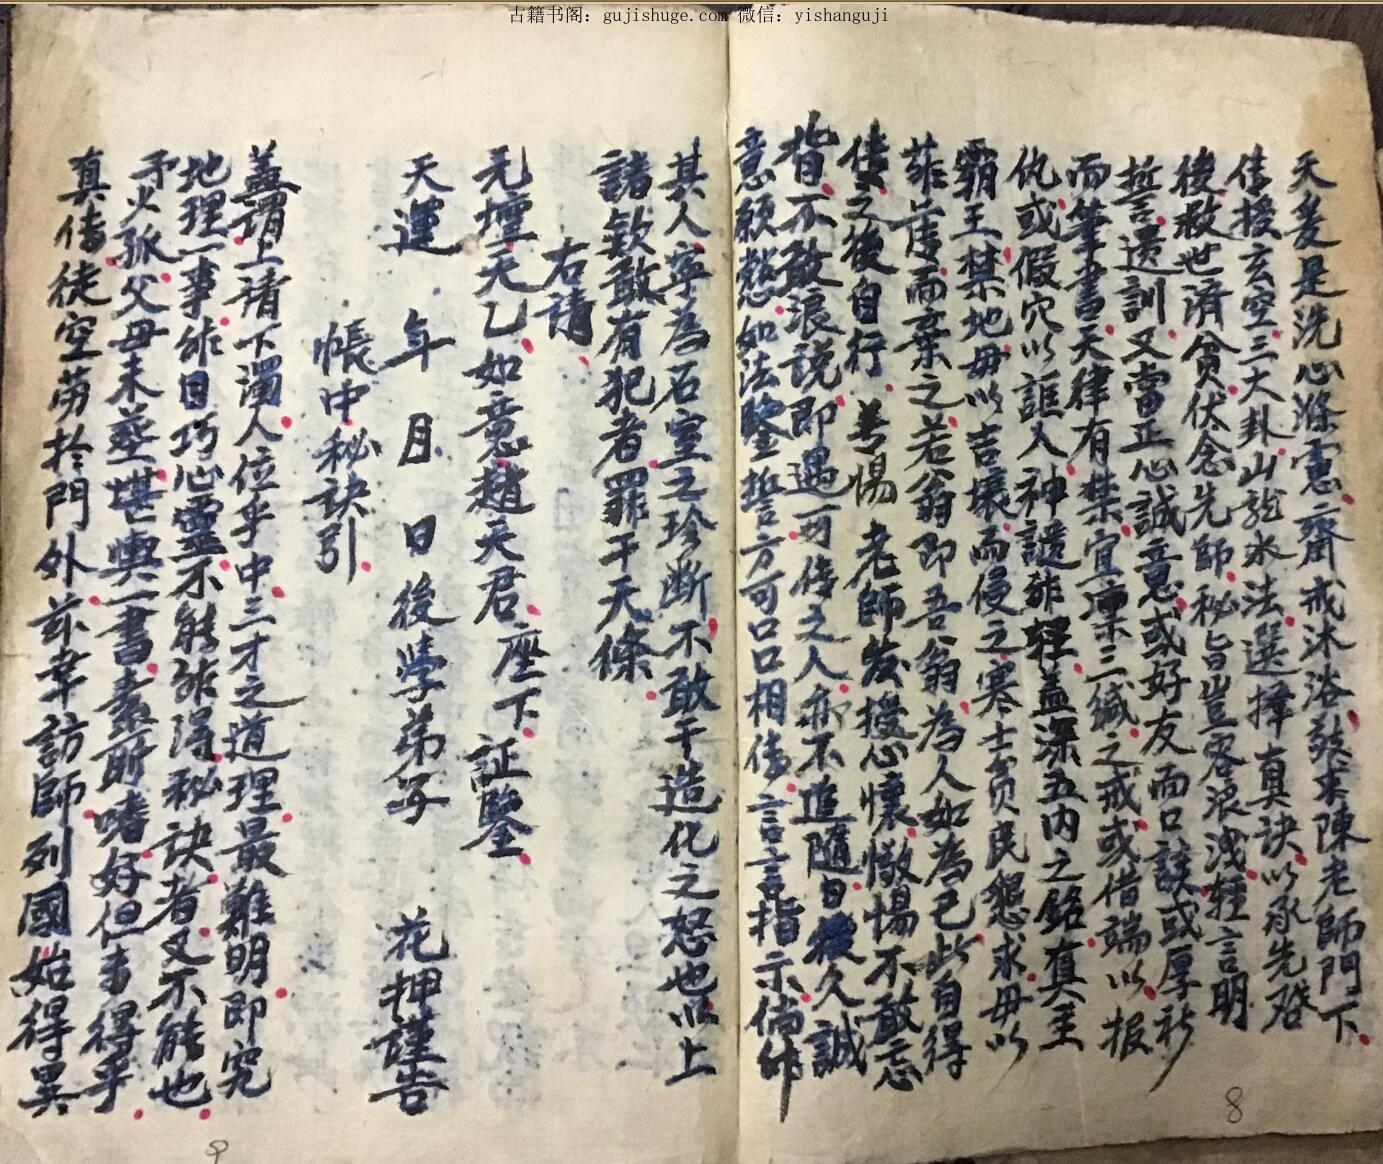 古籍书阁：gujishuge.com 微信：yishanguji
天爰是洗心滌慮齋戒沐浴發求陳老師門下
傳授玄空三大卦山龍水法選擇真訣以承先啓
後救世濟貧伏念先師秘旨豈容浪洩輕言明
誓遺訓又當正心誠意或好友而口談或厚衫
而筆書天律有禁宜凜三緘之戒或借端以报
仇或假穴以誆人神譴非輕益深五内之銘真至
霸王禁地毋以吉壤而侵之寒士貧民懇求毋以
菲廣而棄之若翁即吾翁為人如為己此自得
傳之後自行善惕老師发授心懷懺惕不敢忘
背不敢浪說即遇可傳之人亦不追隨日後久誠
意願懇如法鑒誓方可口口相傳言言指示倘非
其人寧為石室之珍断不敢干造化之怒也以上
諸欵敢有犯者罪干天條
右請
元壇天乙如意趙天君座下証鑒
天運 年 月 日後學弟子 花押謹告
帳中秘訣引
蓋謂上清下濁人位乎中三才之道理最難明即究
地理一事非目巧心靈不能非得秘訣者又不能也
予火孤父母未塟堪輿一書素所嗜好但事得乎
真傳徒空劳於門外茲幸訪師列國始得異
8
9